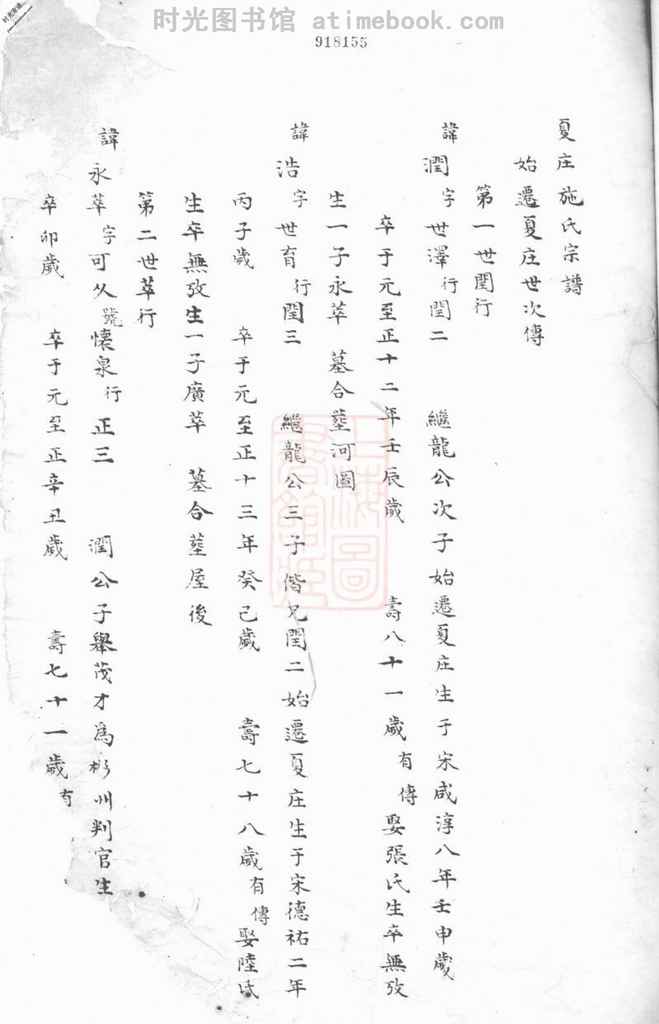 时光图书馆 atimebook.com
918155
夏庄施氏宗譜
始遷夏庄世次傳
第一世閏行
諱潤字世澤行閏二 繼龍公次子始遷夏庄生于宋咸淳八年壬申歲
卒于元至正十二年壬辰歲 壽八十一歲有傳 娶張氏生卒無攷
生一子永萃 墓合塟河圖
諱浩字世育行閏三 繼龍公三子偕兄閏二始遷夏庄生于宋德祐二年
丙子歲 卒于元至正十三年癸己歲 壽七十八歲有傳 娶陸氏
生卒無攷生一子廣萃 墓合塟屋後
第二世萃行
諱永萃字可久號懷泉行正三 潤公子舉茂才為彬州判官生
辛卯歲 卒于元至正辛丑歲 壽七十一歲有